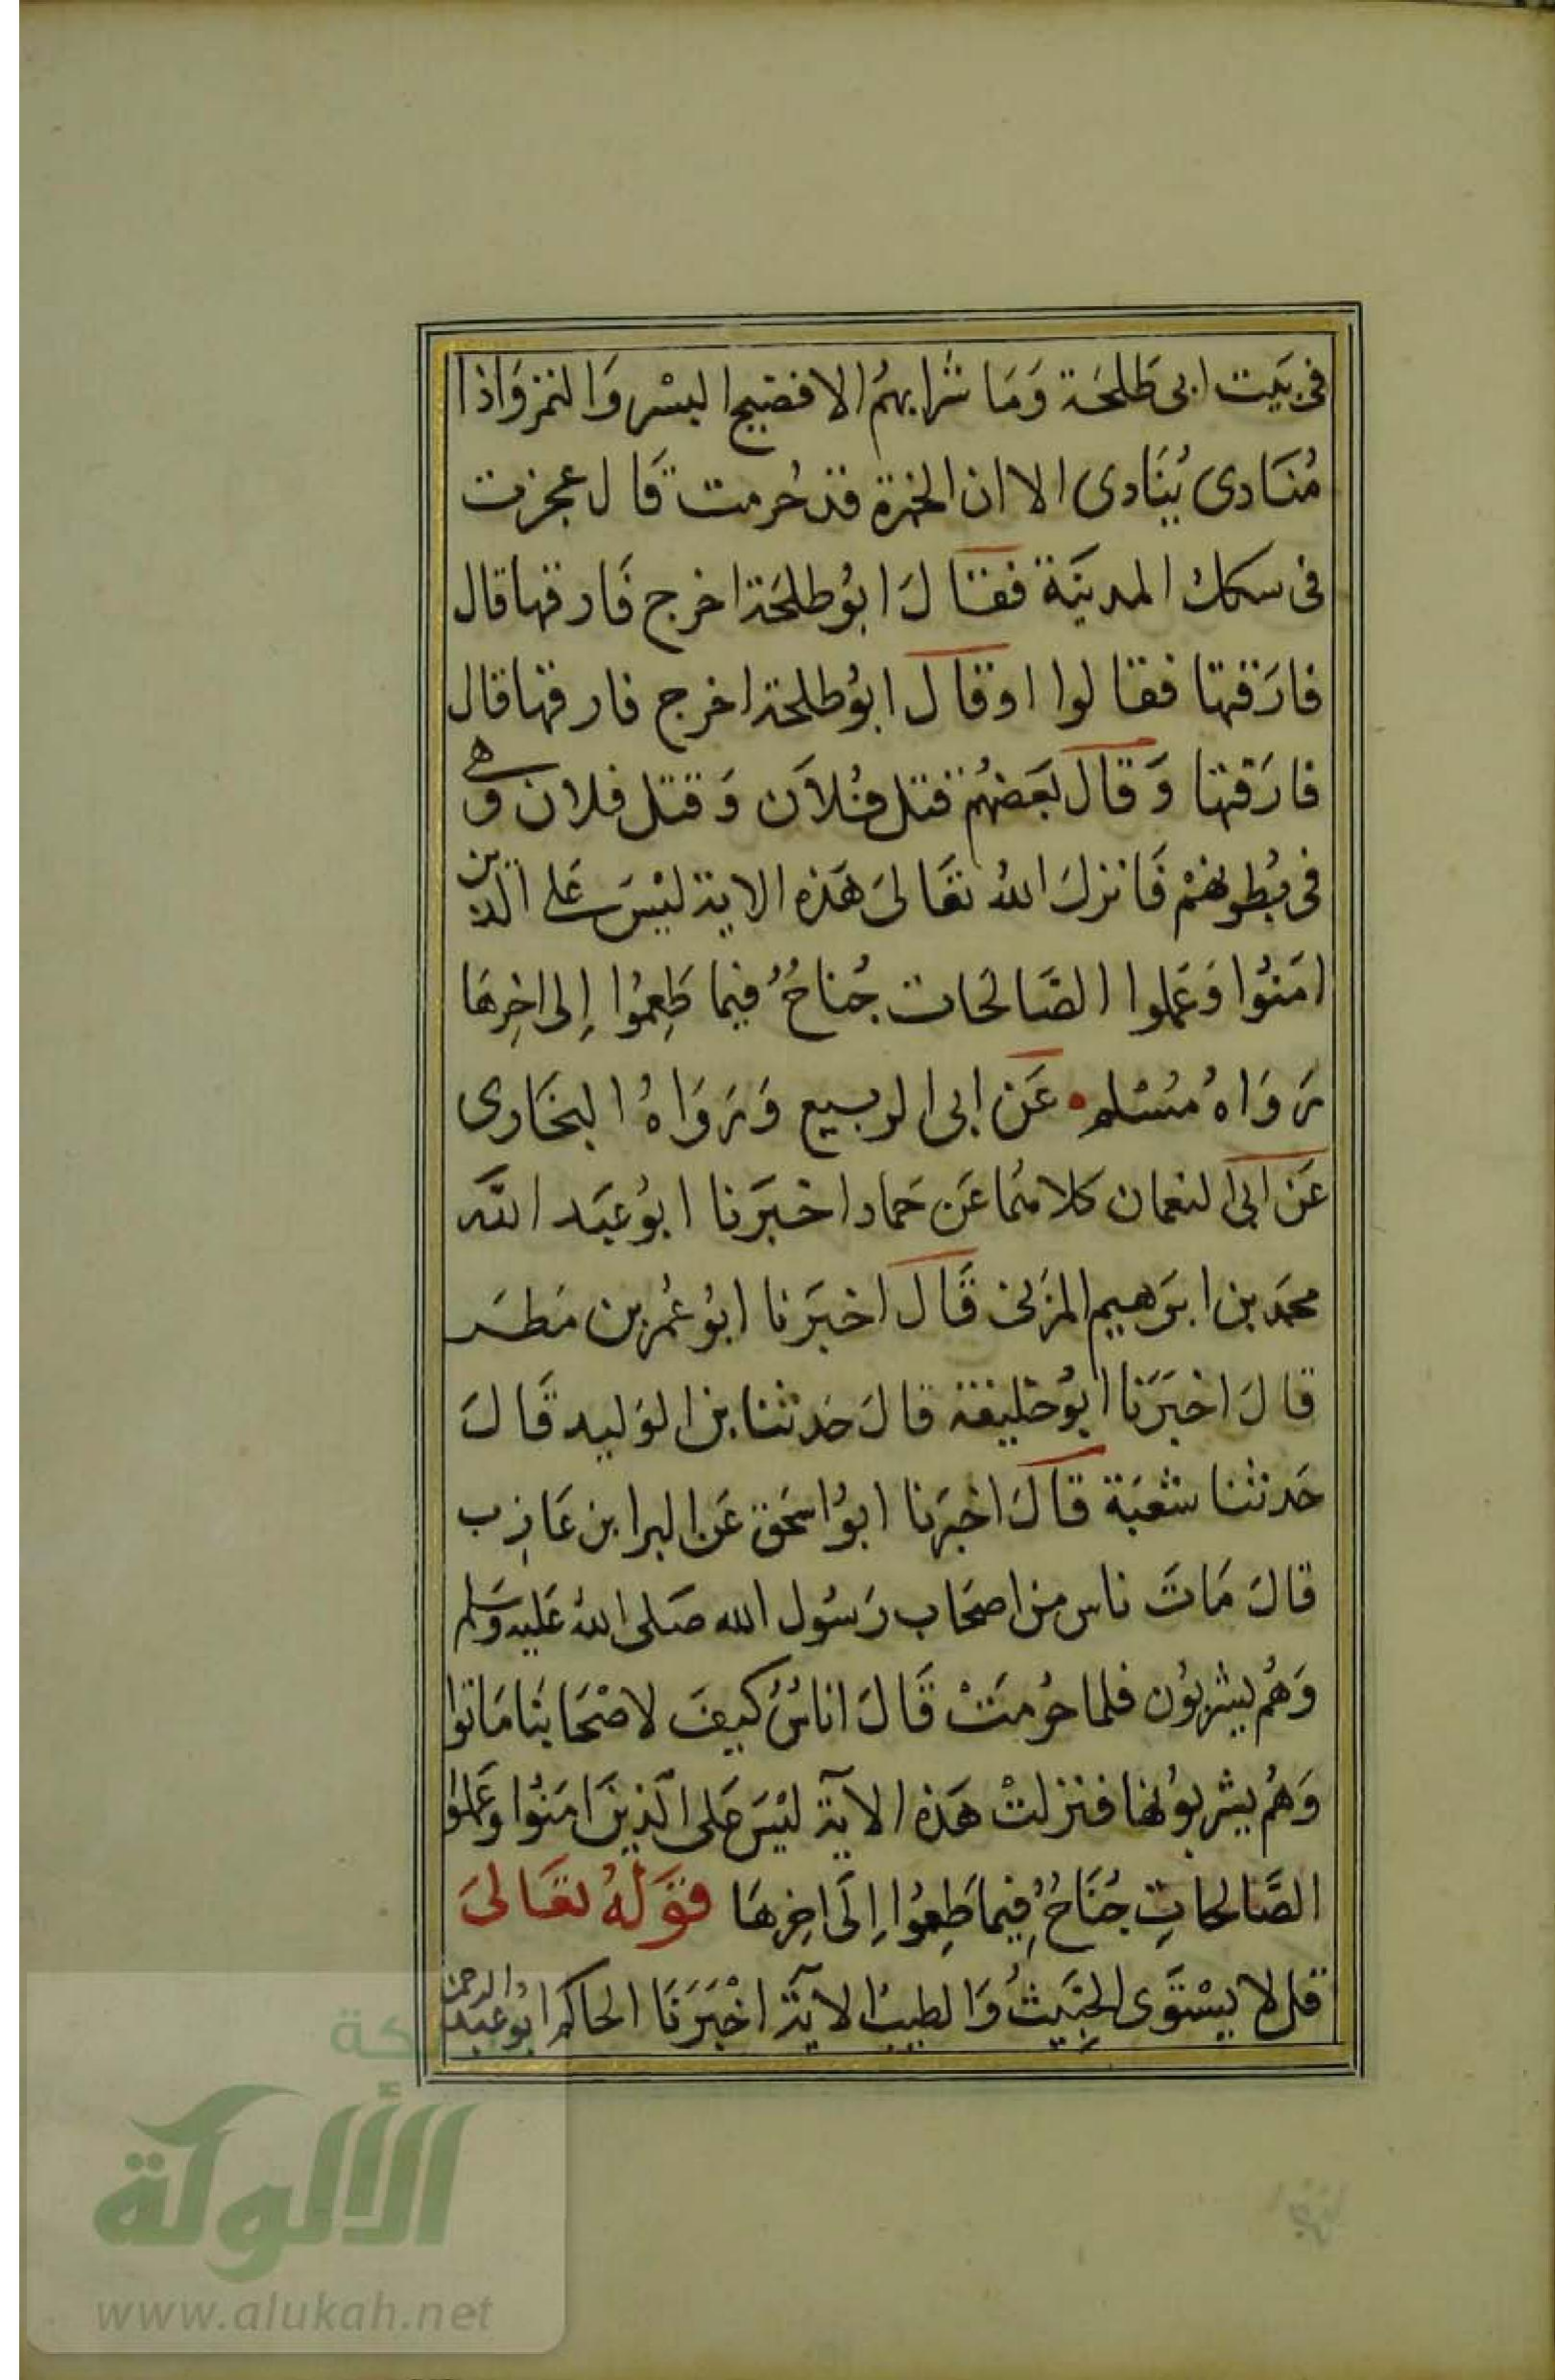 فى بَيت ابى طَلحَة وَمَا شرابهمُ الا فضيج البسْر وَالتمْر وَاذا
مُنَادى يُنَادى الا ان الخمرة قد حُرمت قَال فجرت
فى سكك المدينَة فقَالَ ابوُ طلحَة اخرج فَارقها قال
فارَقتها فقالوا اوقال ابوُ طلحة اخرج فارقها قال
فارَقتها وَقال بَعَضهُم قتل فُلاَن وَقتل فلان وَهى
فى بُطونهمْ فَانزلَ اللهُ تعَالىَ هَذه الاية ليْسَ عَلى الذين
امَنُوا وَعَملوا الصَّالحَات جُناحٌ فيما طَعِمُوا إِلى اخِرهَا
رَوَاهُ مُسْلم • عَن ابى الربيع وَرَوَاهُ البخَارى
عَن ابى النعمان كلاهُما عَن حَماد اخبَرَنا ابوُ عَبَد الله
محمَد بن ابرَهيم المزَنى قَال اخبَرَنا ابوُ عُمرُ بن مَطَر
قالَ اخبَرَنا ابوُ خليفة قالَ حَدثنا بن الوَليد قَالَ
حَدثنا شعبَة قالَ اخبَرنا ابوُ اسحَق عَن البرا بن عَازِب
قالَ مَاتَ ناس من اصحَاب رَسُول الله صَلى اللهُ عَليه وَسَلم
وَهُم يشربوُن فلما حُرمَتْ قَالَ اناسٌ كيفَ لاصْحَابنا مَاتوُا
وَهُم يشربوُنها فنزلتْ هَذه الآية ليْسَ عَلى الَّذينَ امَنُوا وَعَملوُا
الصَّالحاتِ جُنَاحٌ فِيما طَعِمُوا إِلَى اخِرهَا قوَلهُ تعَالىَ
قل لا يسْتوَى الخبَيثُ وَالطيبُ الآية اخْبَرَنَا الحاكم ابوُ عَبَد الرحمن
الألوكة
www.alukah.net